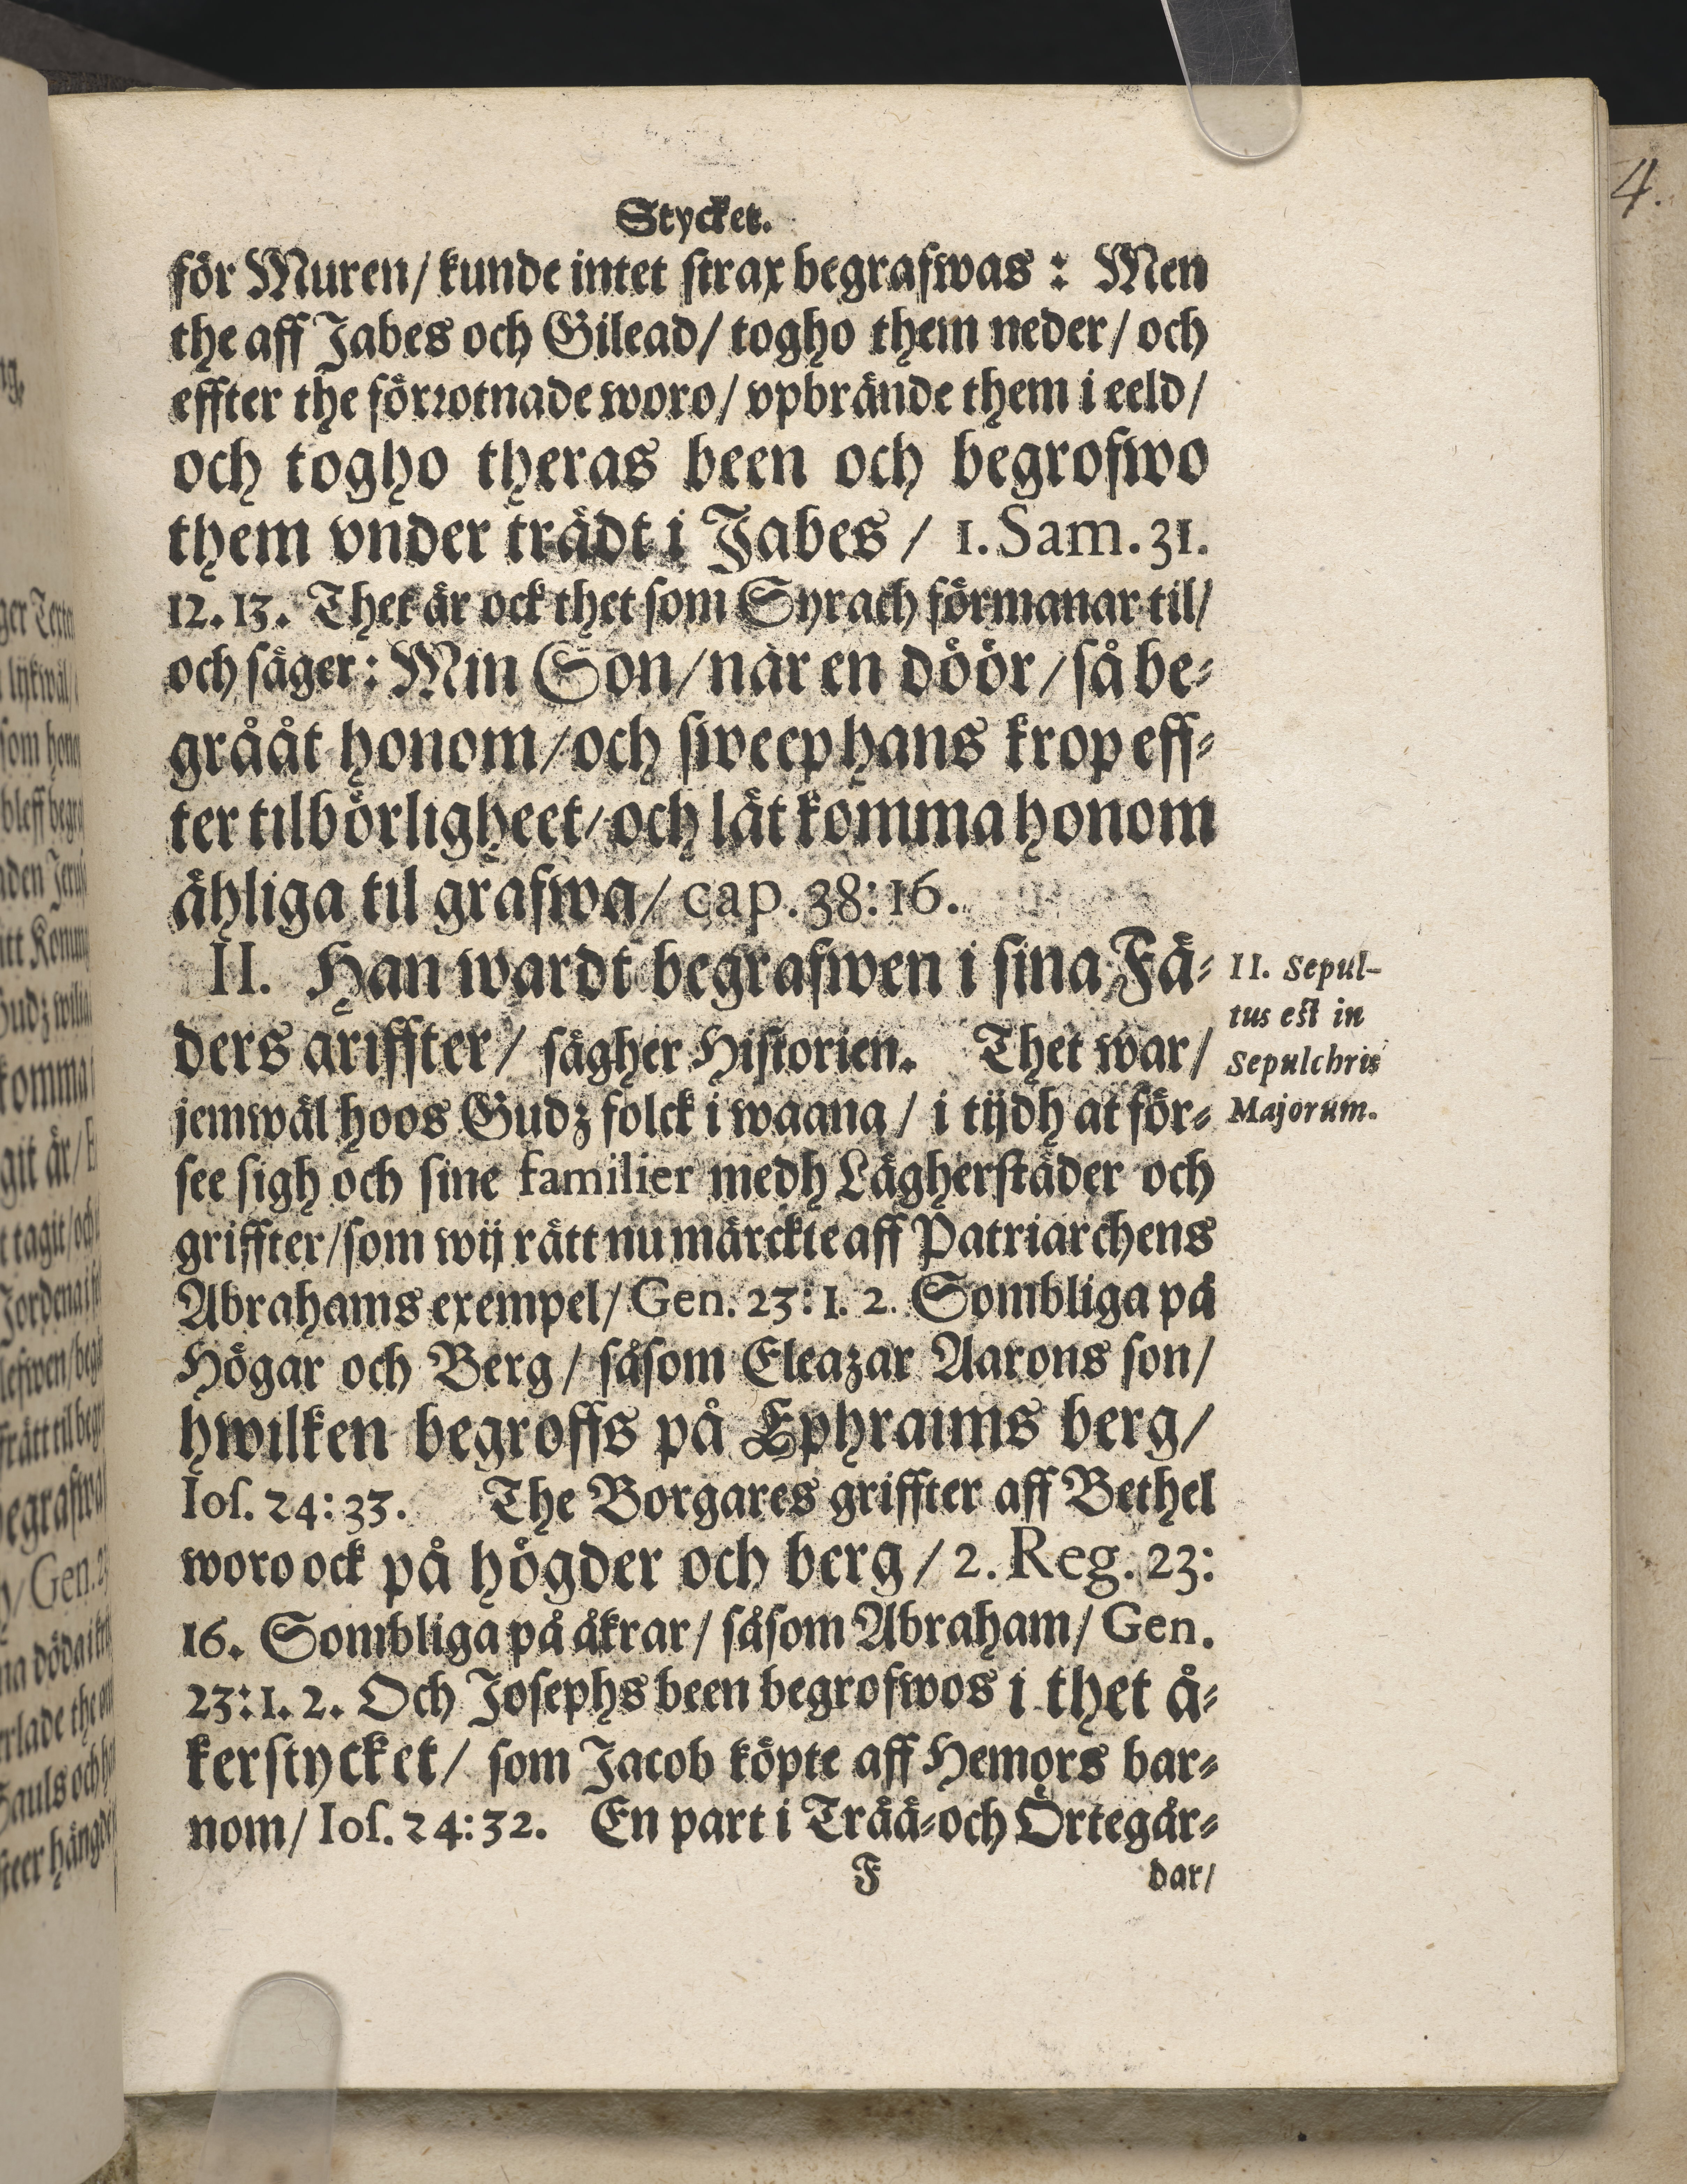 Stycket.
för Muren/ kunde intet strax begrafwas: Men
the aff Jabes och Gilead/ togho them neder/ och
effter the förrotnade woro/ vpbrände them i eeld/
och togho theras been och begrofwo
them vnder trädt i Jabes / 1. Sam. 31.
12. 13. Thet är ock thet som Syrach förmanar til/
och säger: Min Son/ när en döör/ så be-
grååt honom/ och sweep hans krop eff-
ter tilbörligheet/ och låt komma honom
ähliga til grafwa/ cap. 38: 16.
II. Han wardt begrafwen i sina Fä-
ders griffter/ sägher Historien. Thet war/
jemwäl hoos Gudz folck i waana/ i tijdh at för-
see sigh och sine familier medh Lägherstäder och
griffter/ som wij rätt nu märckte aff Patriarchens
Abrahams exempel/ Gen. 23: 1. 2. Sombliga på
Högar och Berg/ såsom Eleazar Aarons son/
hwilken begroffs på Ephraims berg/
Ios. 24: 33. The Borgares griffter aff Bethel
woro ock på högder och berg/ 2. Reg. 23:
16. Sombliga på åkrar/ såsom Abraham/ Gen.
23: 1. 2. Och Josephs been begrofwos i thet å-
kerstycket/ som Jacob köpte aff Hemors bar-
nom/ Ios. 24: 32. En part i Trää- och Örtegår-
F dar/
II. Sepul-
tus est in
Sepulchris
Majorum.
4.